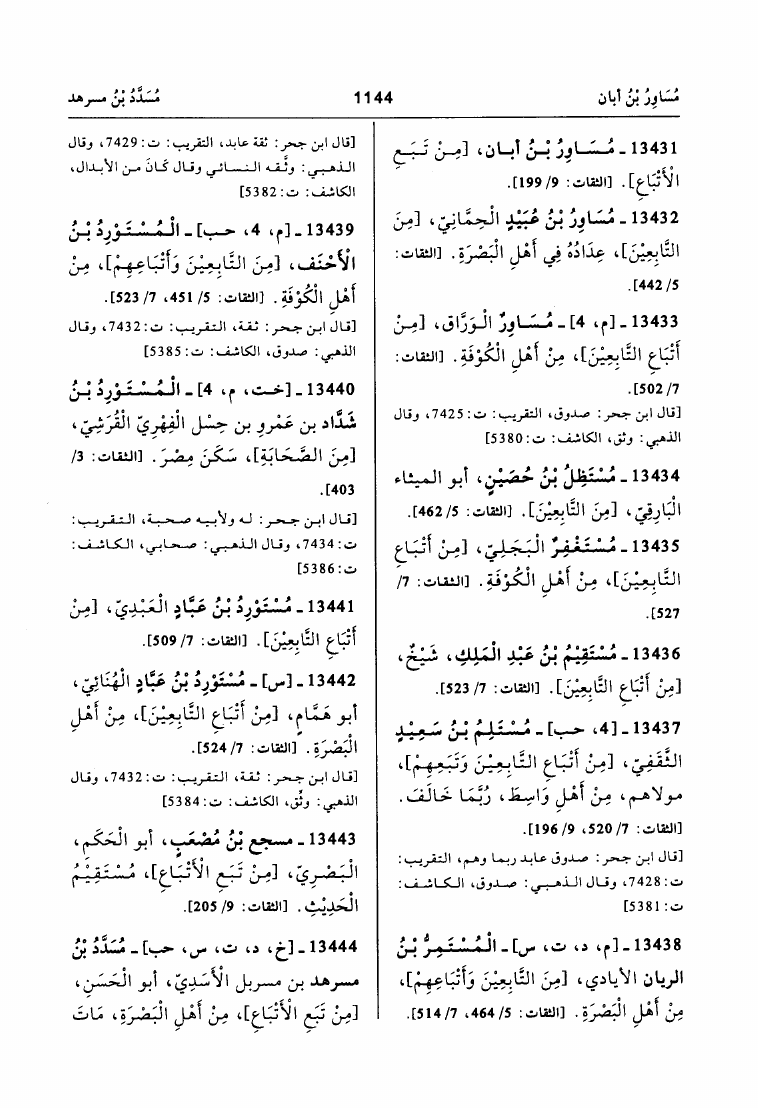 مُسَاوِرُ بْنُ أبان
1144
مُسَدَّدُ بْنُ مسرهد
13431 ـ مُسَاوِرُ بْنُ أبان، [مِنْ تَبَعِ
الْأَتْبَاعِ]. [الثقات: 9/ 199].
13432 ـ مُسَاوِرُ بْنُ عُبَيْدٍ الْحِمَّانِيّ، [مِنَ
التَّابِعِيْنَ]، عِدَادُهُ فِي أَهْلِ الْبَصْرَةِ. [الثقات:
5/ 442].
13433 ـ [م، 4] ـ مُسَاوِرٌ الْوَرَّاق، [مِنْ
أَتْبَاعِ التَّابِعِيْنَ]، مِنْ أَهْلِ الْكُوْفَةِ. [الثقات:
7/ 502].
[قال ابن حجر: صدوق، التقريب: ت: 7425، وقال
الذهبي: وثق، الكاشف: ت: 5380]
13434 ـ مُسْتَظِلُ بْنُ حُصَيْنٍ، أبو الميثاء
الْبَارِقِيّ، [مِنَ التَّابِعِيْنَ]. [الثقات: 5/ 462].
13435 ـ مُسْتَغْفِرٌ الْبَجَلِيّ، [مِنْ أَتْبَاعِ
التَّابِعِيْنَ]، مِنْ أَهْلِ الْكُوْفَةِ. [الثقات: 7/
527].
13436 ـ مُسْتَقِيْمُ بْنُ عَبْدِ الْمَلِكِ، شَيْخٌ،
[مِنْ أَتْبَاعِ التَّابِعِيْنَ]. [الثقات: 7/ 523].
13437 ـ [4، حب] ـ مُسْتَلِمُ بْنُ سَعِيْدٍ
الثَّقَفِيّ، [مِنْ أَتْبَاعِ التَّابِعِيْنَ وَتَبَعِهِمْ]،
مولاهم، مِنْ أَهْلِ وَاسِطَ، رُبَّمَا خَالَفَ.
[الثقات: 7/ 520، 9/ 196].
[قال ابن حجر: صدوق عابد ربما وهم، التقريب:
ت: 7428، وقال الذهبي: صدوق، الكاشف:
ت: 5381]
13438 ـ [م، د، ت، س] ـ الْمُسْتَمِرُّ بْنُ
الريان الأيادي، [مِنَ التَّابِعِيْنَ وَأَتْبَاعِهِمْ]،
مِنْ أَهْلِ الْبَصْرَةِ. [الثقات: 5/ 464، 7/ 514].
[قال ابن حجر: ثقة عابد، التقريب: ت: 7429، وقال
الذهبي: وثّقه النسائي وقال كَانَ من الأبدال،
الكاشف: ت: 5382]
13439 ـ [م، 4، حب] ـ الْمُسْتَوْرِدُ بْنُ
الأَحْنَف، [مِنَ التَّابِعِيْنَ وَأَتْبَاعِهِمْ]، مِنْ
أَهْلِ الْكُوْفَةِ. [الثقات: 5/ 451، 7/ 523].
[قال ابن حجر: ثقة، التقريب: ت: 7432، وقال
الذهبي: صدوق، الكاشف: ت: 5385]
13440 ـ [خت، م، 4] ـ الْمُسْتَوْرِدُ بْنُ
شَدَّاد بن عَمْرِو بن حِسْل الْفِهْرِيّ الْقُرَشِيّ،
[مِنَ الصَّحَابَةِ]، سَكَنَ مِصْرَ. [الثقات: 3/
403].
[قال ابن حجر: له ولأبيه صحبة، التقريب:
ت: 7434، وقال الذهبي: صحابي، الكاشف:
ت: 5386]
13441 ـ مُسْتَوْرِدُ بْنُ عَبَّادٍ الْعَبْدِيّ، [مِنْ
أَتْبَاعِ التَّابِعِيْنَ]. [الثقات: 7/ 509].
13442 ـ [س] ـ مُسْتَوْرِدُ بْنُ عَبَّادٍ الْهُنَائِيّ،
أبو هَمَّامٍ، [مِنْ أَتْبَاعِ التَّابِعِيْنَ]، مِنْ أَهْلِ
الْبَصْرَةِ. [الثقات: 7/ 524].
[قال ابن حجر: ثقة، التقريب: ت: 7432، وقال
الذهبي: وثّق، الكاشف: ت: 5384]
13443 ـ مسجع بْنُ مُصْعَبٍ، أبو الْحَكَمِ،
الْبَصْرِيّ، [مِنْ تَبَعِ الْأَتْبَاعِ]، مُسْتَقِيْمُ
الْحَدِيْثِ. [الثقات: 9/ 205].
13444 ـ [خ، د، ت، س، حب] ـ مُسَدَّدُ بْنُ
مسرهد بن مسربل الأَسَدِيّ، أبو الْحَسَنِ،
[مِنْ تَبَعِ الْأَتْبَاعِ]، مِنْ أَهْلِ الْبَصْرَةِ، مَاتَ